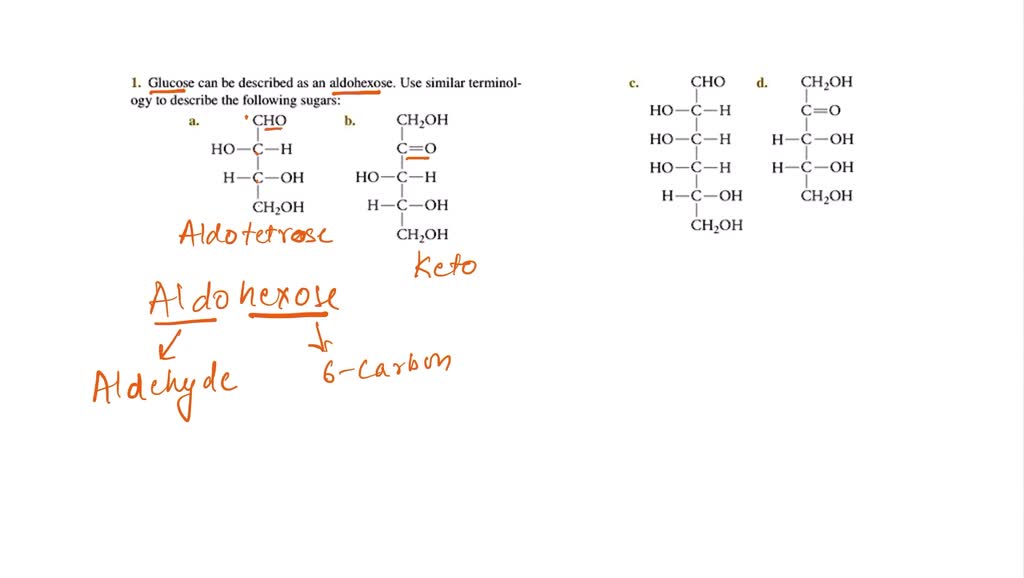 1. Glucose can be described as an aldohexose. Use similar terminol-
ogy to describe the following sugars:
a.
CHO
HO—C—H
H—C—OH
CH₂OH
Aldotetrose
b.
CH₂OH
C=O
HO—C—H
H—C—OH
CH₂OH
Keto
c.
CHO
HO—C—H
HO—C—H
HO—C—H
H—C—OH
CH₂OH
d.
CH₂OH
C=O
H—C—OH
H—C—OH
CH₂OH
Aldohexose
Aldehyde
6-Carbon